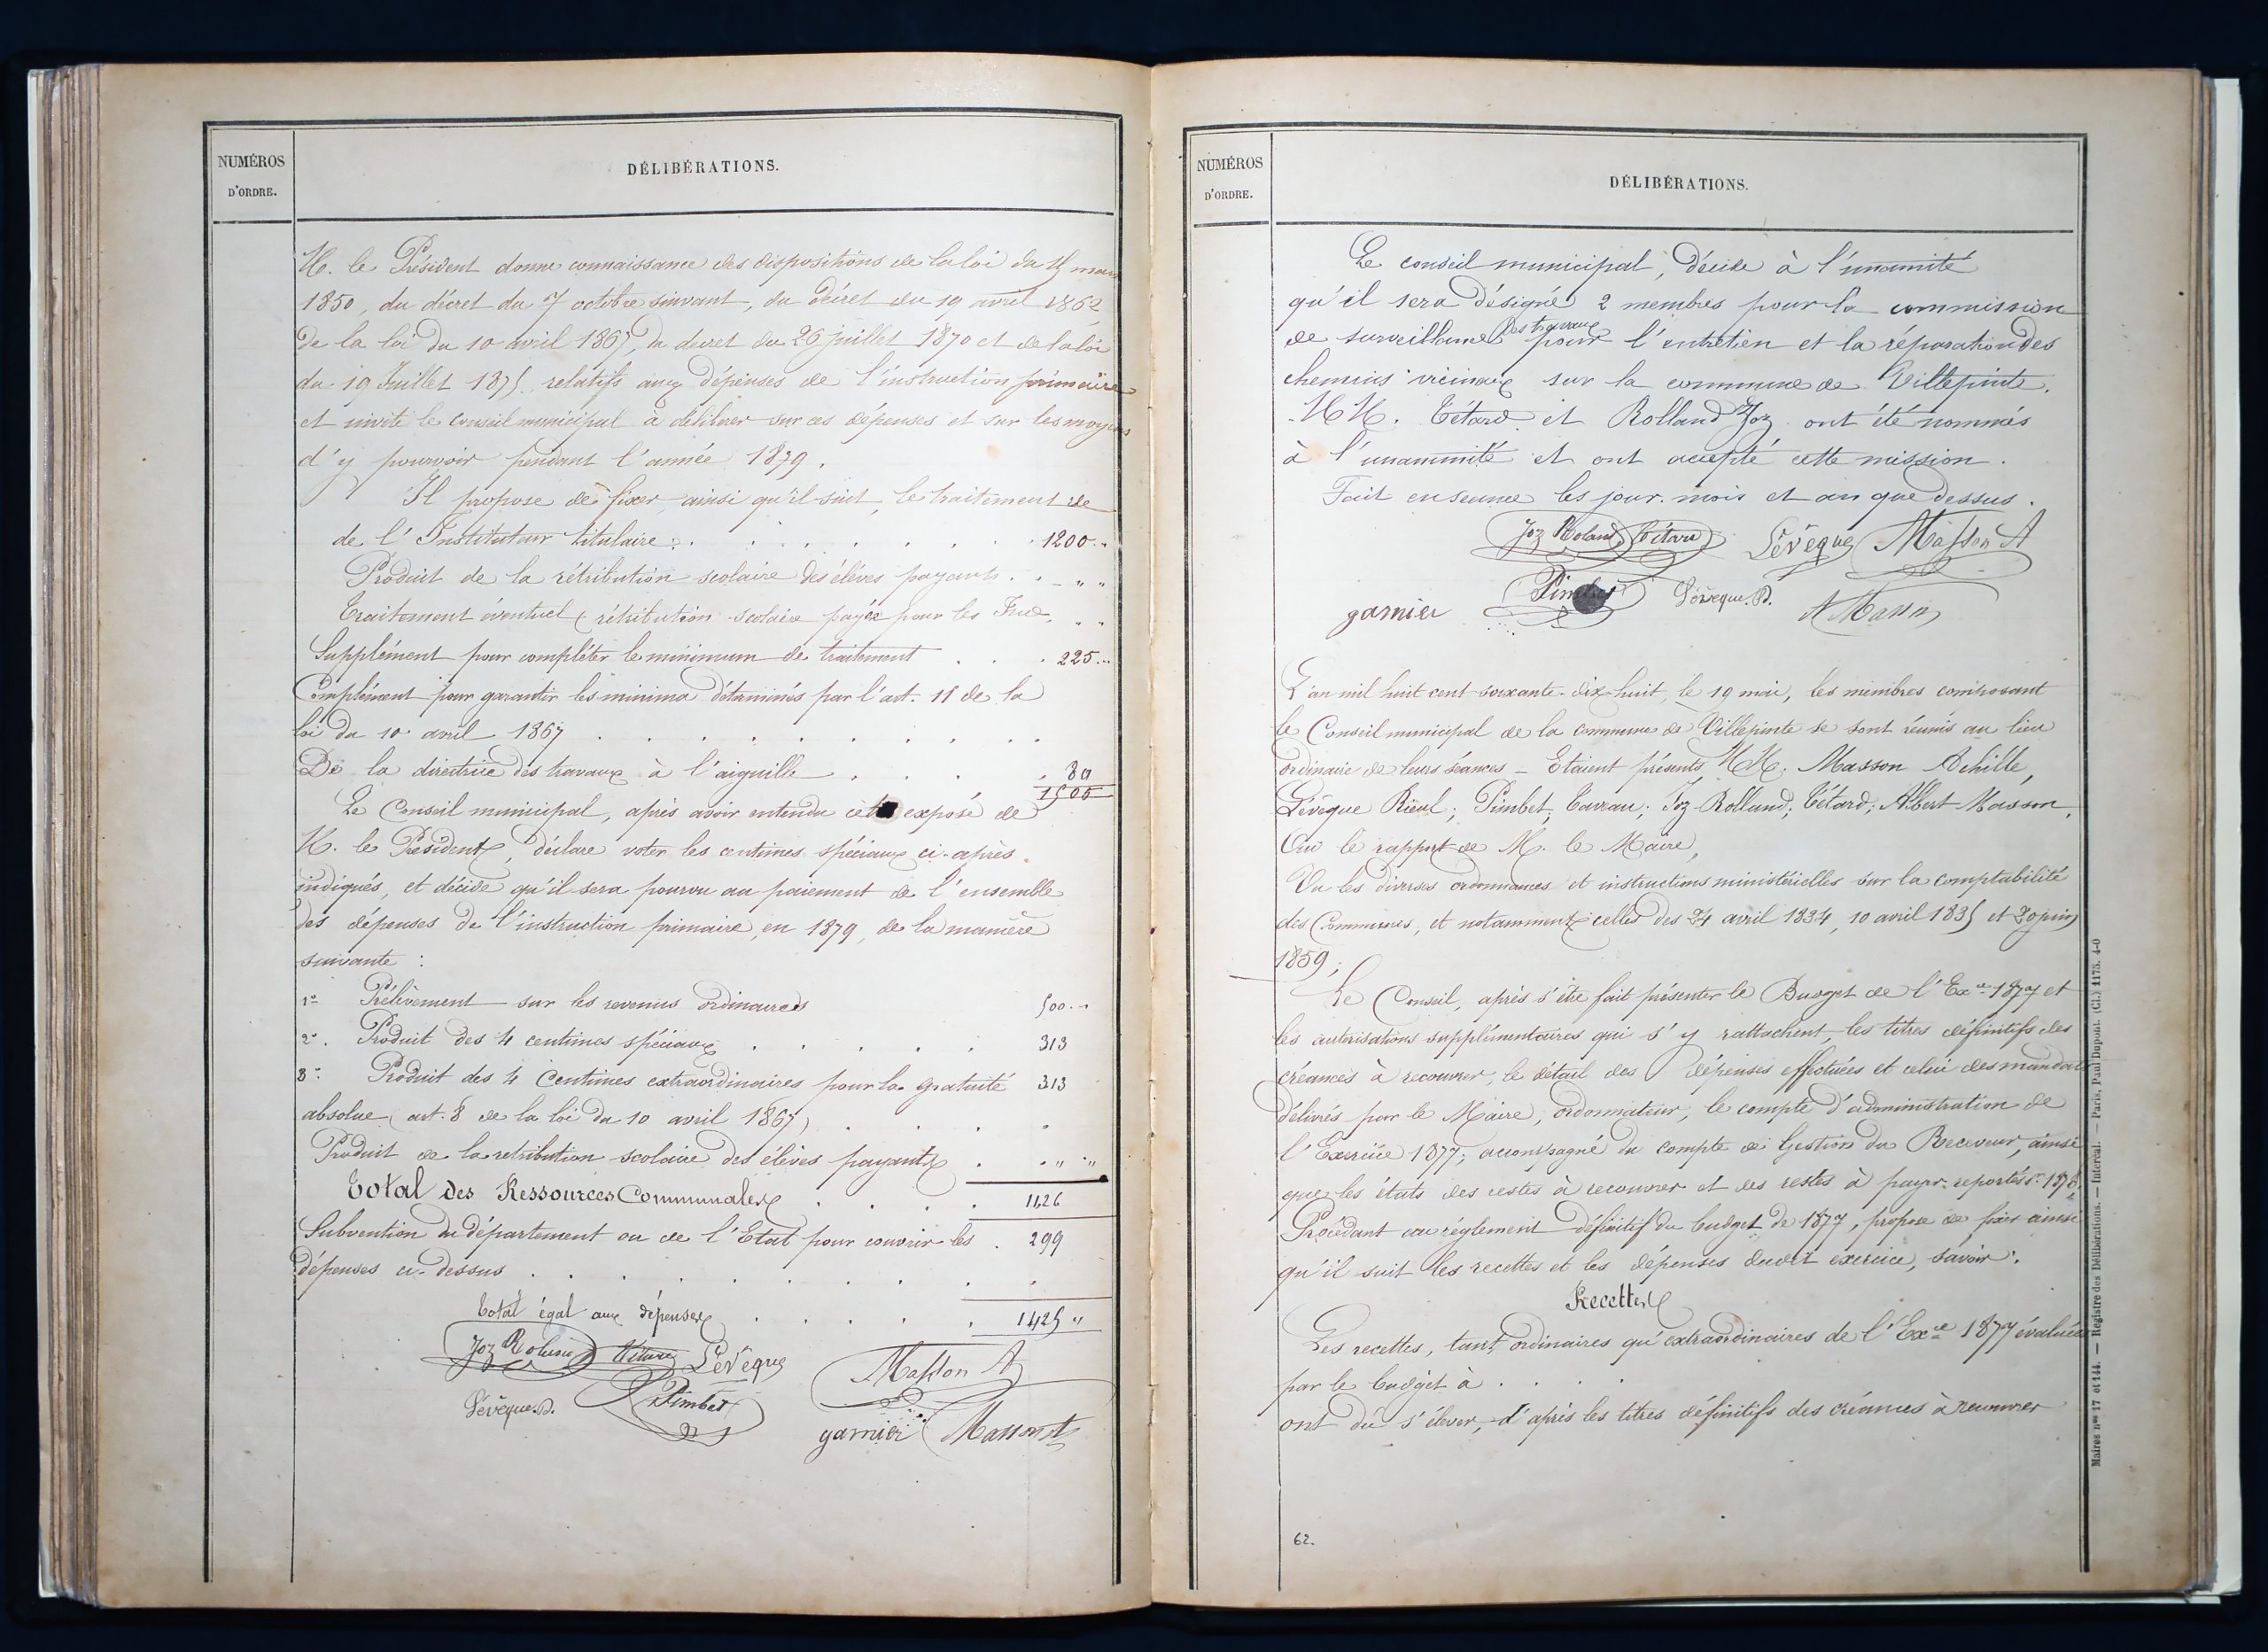 NUMÉROS
D'ORDRE.
DÉLIBÉRATIONS.
M. le Président donne connaissance des dispositions de la loi du 15 mars
1850, du décret du 7 octobre suivant, du décret du 19 avril 1862
de la loi du 10 avril 1867, du decret du 26 juillet 1870 et de la loi
du 19 Juillet 1875 relatifs aux dépenses de l'instruction primaire
et invite le conseil municipal à délibérer sur ces dépenses et sur les moyens
d'y pourvoir pendant l'année 1879.
Il propose de fixer ainsi qu'il suit, le traitement de
de l'Instituteur titulaire . . . 1200 "
Produit de la rétribution scolaire des élèves payants . . " "
Traitement éventuel (rétribution scolaire payée pour les " "
Supplément pour compléter le minimum de traitement . . . 225 "
Complément pour garantir les minima déterminés par l'art. 11 de la
loi du 10 avril 1867 . . .
De la directrice des travaux à l'aiguille . . . 80
1505
Le Conseil municipal, après avoir entendu cet exposé de
M. le Président, déclare voter les centimes spéciaux ci-après
indiqués, et décide qu'il sera pourvu au paiement de l'ensemble
des dépenses de l'instruction primaire, en 1879, de la manière
suivante :
1° Prélèvement sur les revenus ordinaires 500 "
2° Produit des 4 centimes spéciaux . . . 313
3° Produit des 4 Centimes extraordinaires pour la gratuité 313
absolue (art. 8 de la loi du 10 avril 1867) . . .
Produit de la retribution scolaire des élèves payants . . " "
Total des Ressources Communales . . . 1126
Subvention du département ou de l'Etat pour couvrir les . 299
dépenses ci-dessus . . .
Total égal aux dépenses . . . 1425 "
Joz Roland Tétard Lévêque Masson A
Lévêque. D. Pimbet garnier Masson A
NUMÉROS
D'ORDRE.
DÉLIBÉRATIONS.
Le conseil municipal, décide à l'unamité
qu'il sera désigné 2 membres pour la commission
des travaux
de surveillance pour l'entretien et la réparation des
chemins vicinaux sur la commune de Villepinte.
MM. Tétard et Rolland Joz ont été nommés
à l'unanimité et ont accepté cette mission.
Fait en seance les jour, mois et an que dessus.
Joz Roland Tétard Lévêque Masson A
garnier Pimbet Lévêque. D. A Masson
L'an mil huit cent soixante-dix-huit, le 19 mai, les membres composant
le Conseil municipal de la commune de Villepinte se sont réunis au lieu
ordinaire de leurs séances - Etaient présents MM. Masson Achille,
Lévêque Rieul; Pimbet; Joz-Rolland; Tétard; Albert Masson,
Oui le rapport de M. le Maire,
Vu les diverses ordonnances et instructions ministérielles sur la comptabilité
des Communes, et notamment celles des 24 avril 1834, 10 avril 1835 et 20 juin
1859;
Le Conseil, après s'être fait présenter le Budget de l'Exce 1877 et
les autorisations supplémentaires qui s'y rattachent, les titres définitifs des
créances à recouvrer, le détail des dépenses effectuées et celui des mandats
délivrés par le Maire, ordonnateur, le compte d'administration de
l'Exercice 1877; accompagné du compte de Gestion du Receveur, ainsi
que les états des restes à recouvrer et des restes à payer reportés sr 1878,
Procédant au règlement définitif du budget de 1877, propose de fixer ainsi
qu'il suit les recettes et les dépenses dudit exercice, savoir :
Recettes
Les recettes, tant ordinaires qu'extraordinaires de l'Exce 1877 évaluées
par le budget à . . . .
ont dû s'élever, d'après les titres définitifs des créances à recouvrer
62.
Mairies nos 17 et 144. — Registre des Délibérations. — Intercal. — Paris, Paul Dupont. (Cl.) 1175. 4-0